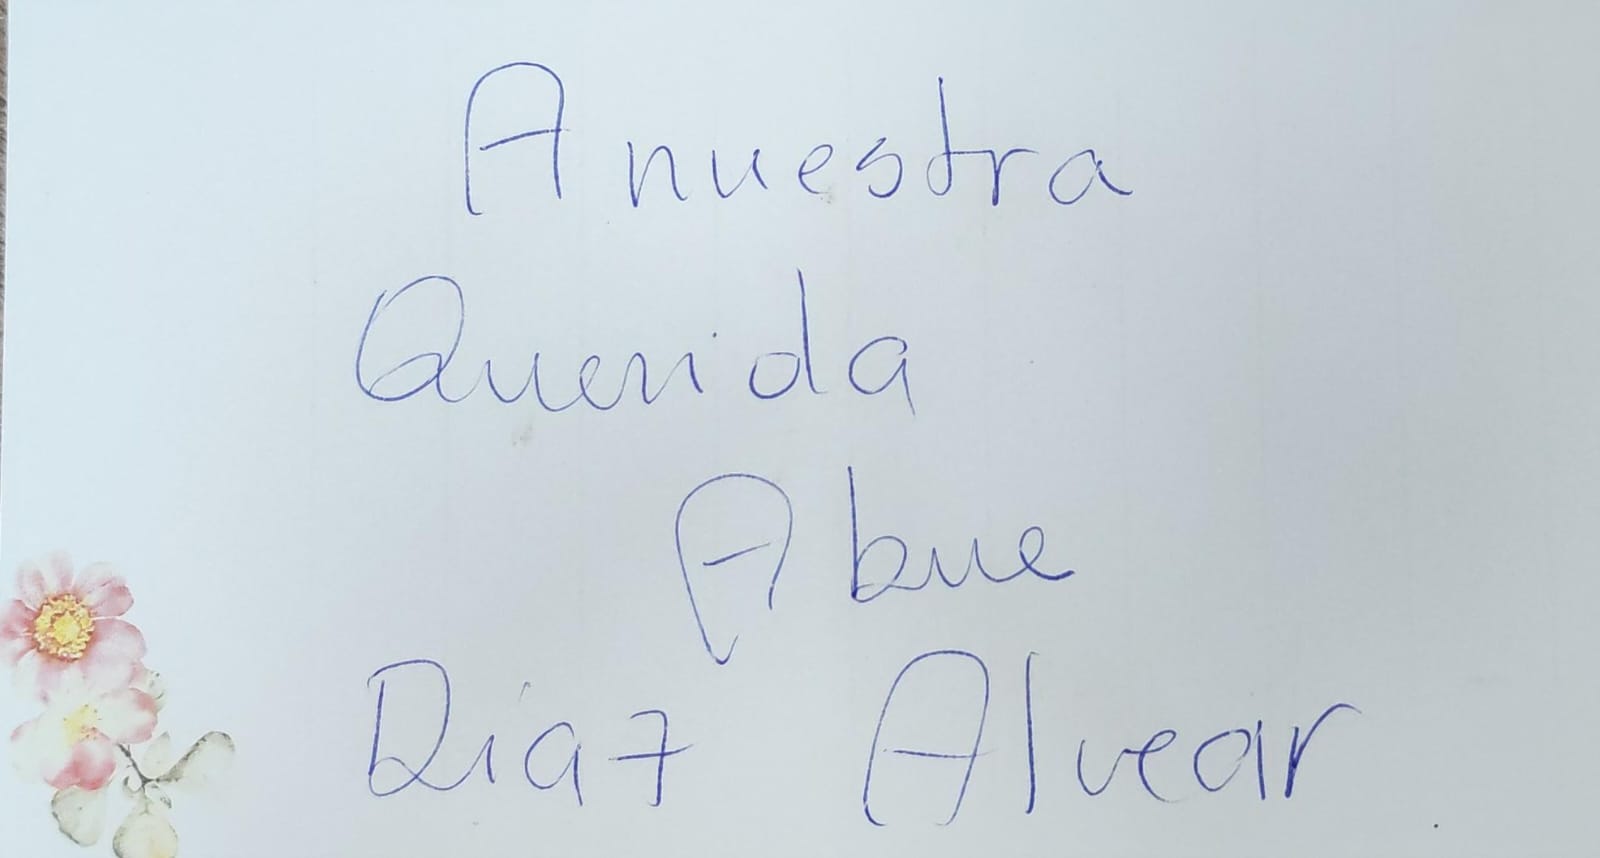 A nuestra
Querida
Abue
Díaz Alvear